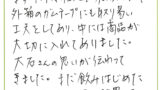 外箱のガムテープにも取り易い
工夫をしてあり、中には商品が
大切に入れてありました。
大石さんの思いが伝わって
きました。まだ飲みはじめた